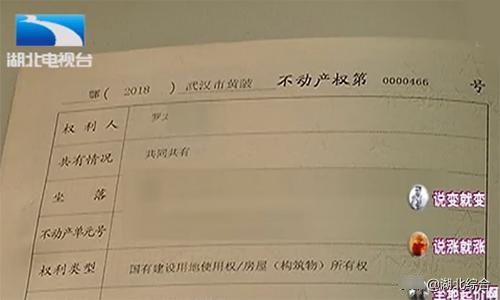 湖北电视台
鄂( 2018 ) 武汉市黄陂 不动产权第 0000466 号
权利人 罗
共有情况 共同共有
坐落
不动产单元号
权利类型 国有建设用地使用权/房屋（构筑物）所有权
说变就变
说涨就涨
@湖北综合